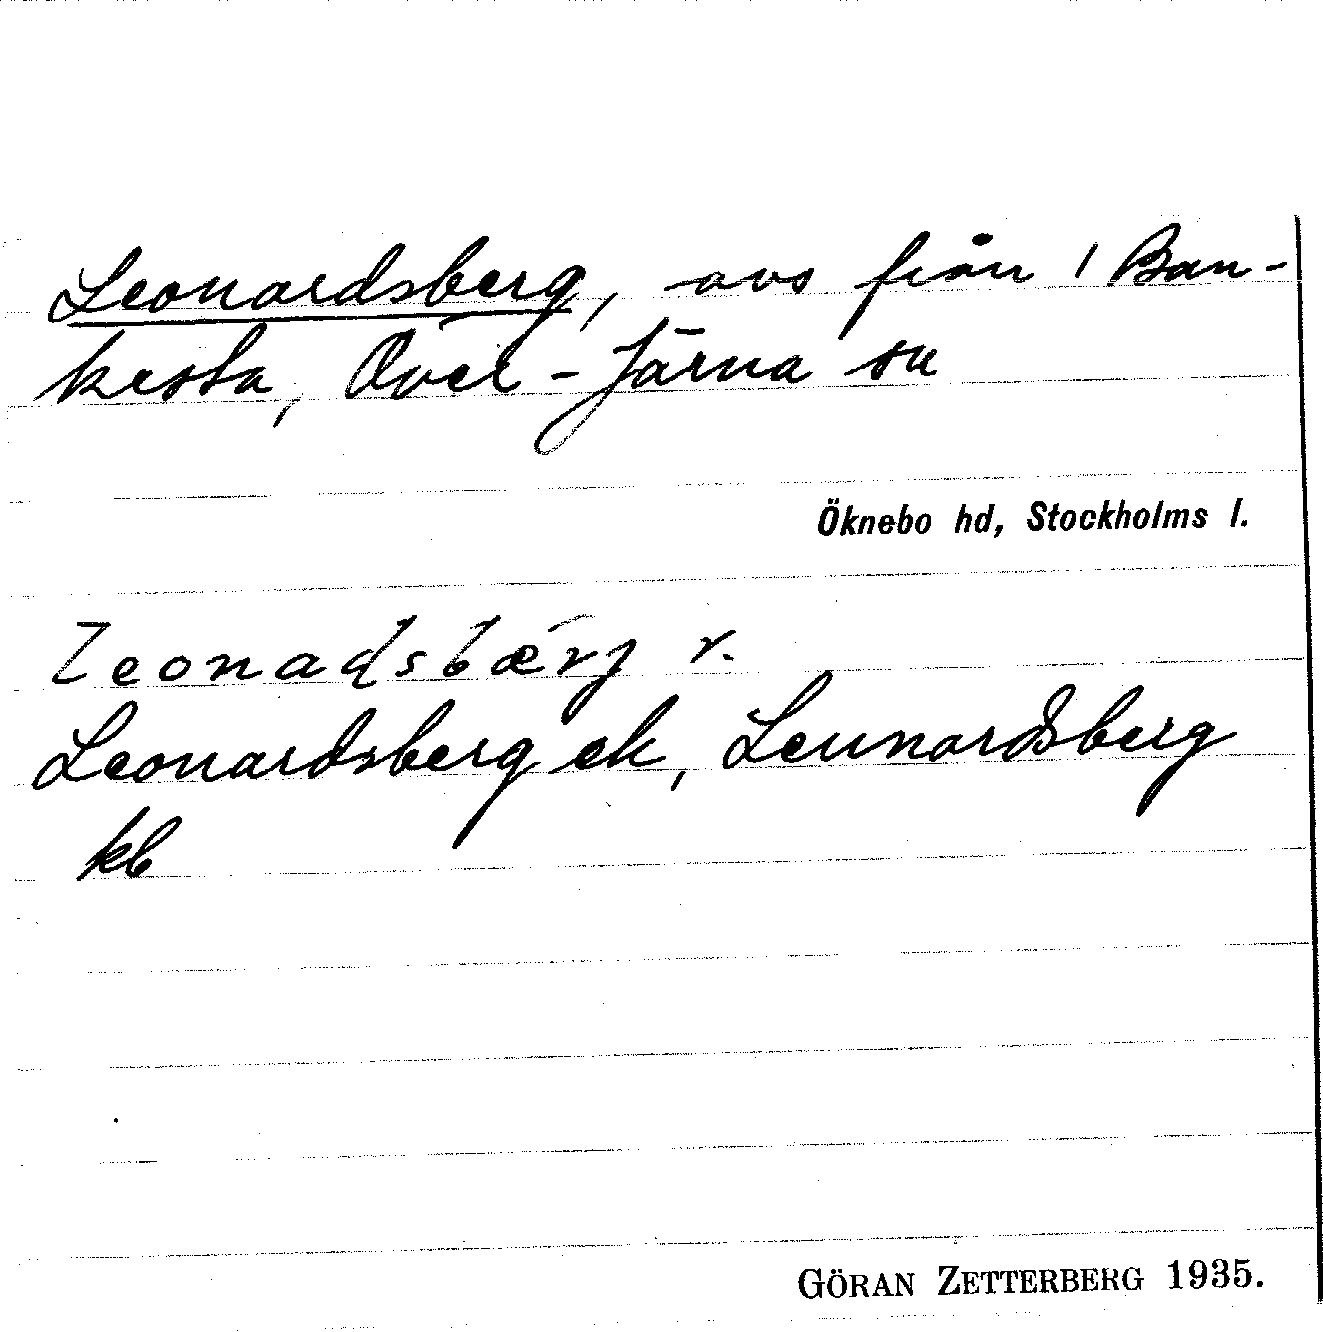 Leonardsberg, avs från 1 Ban-
kesta, Över-Järna sn
Öknebo hd, Stockholms l.
leonaḍsbærj r.
Leonardsberg ek, Lennardsberg
kb
GÖRAN ZETTERBERG 1935.